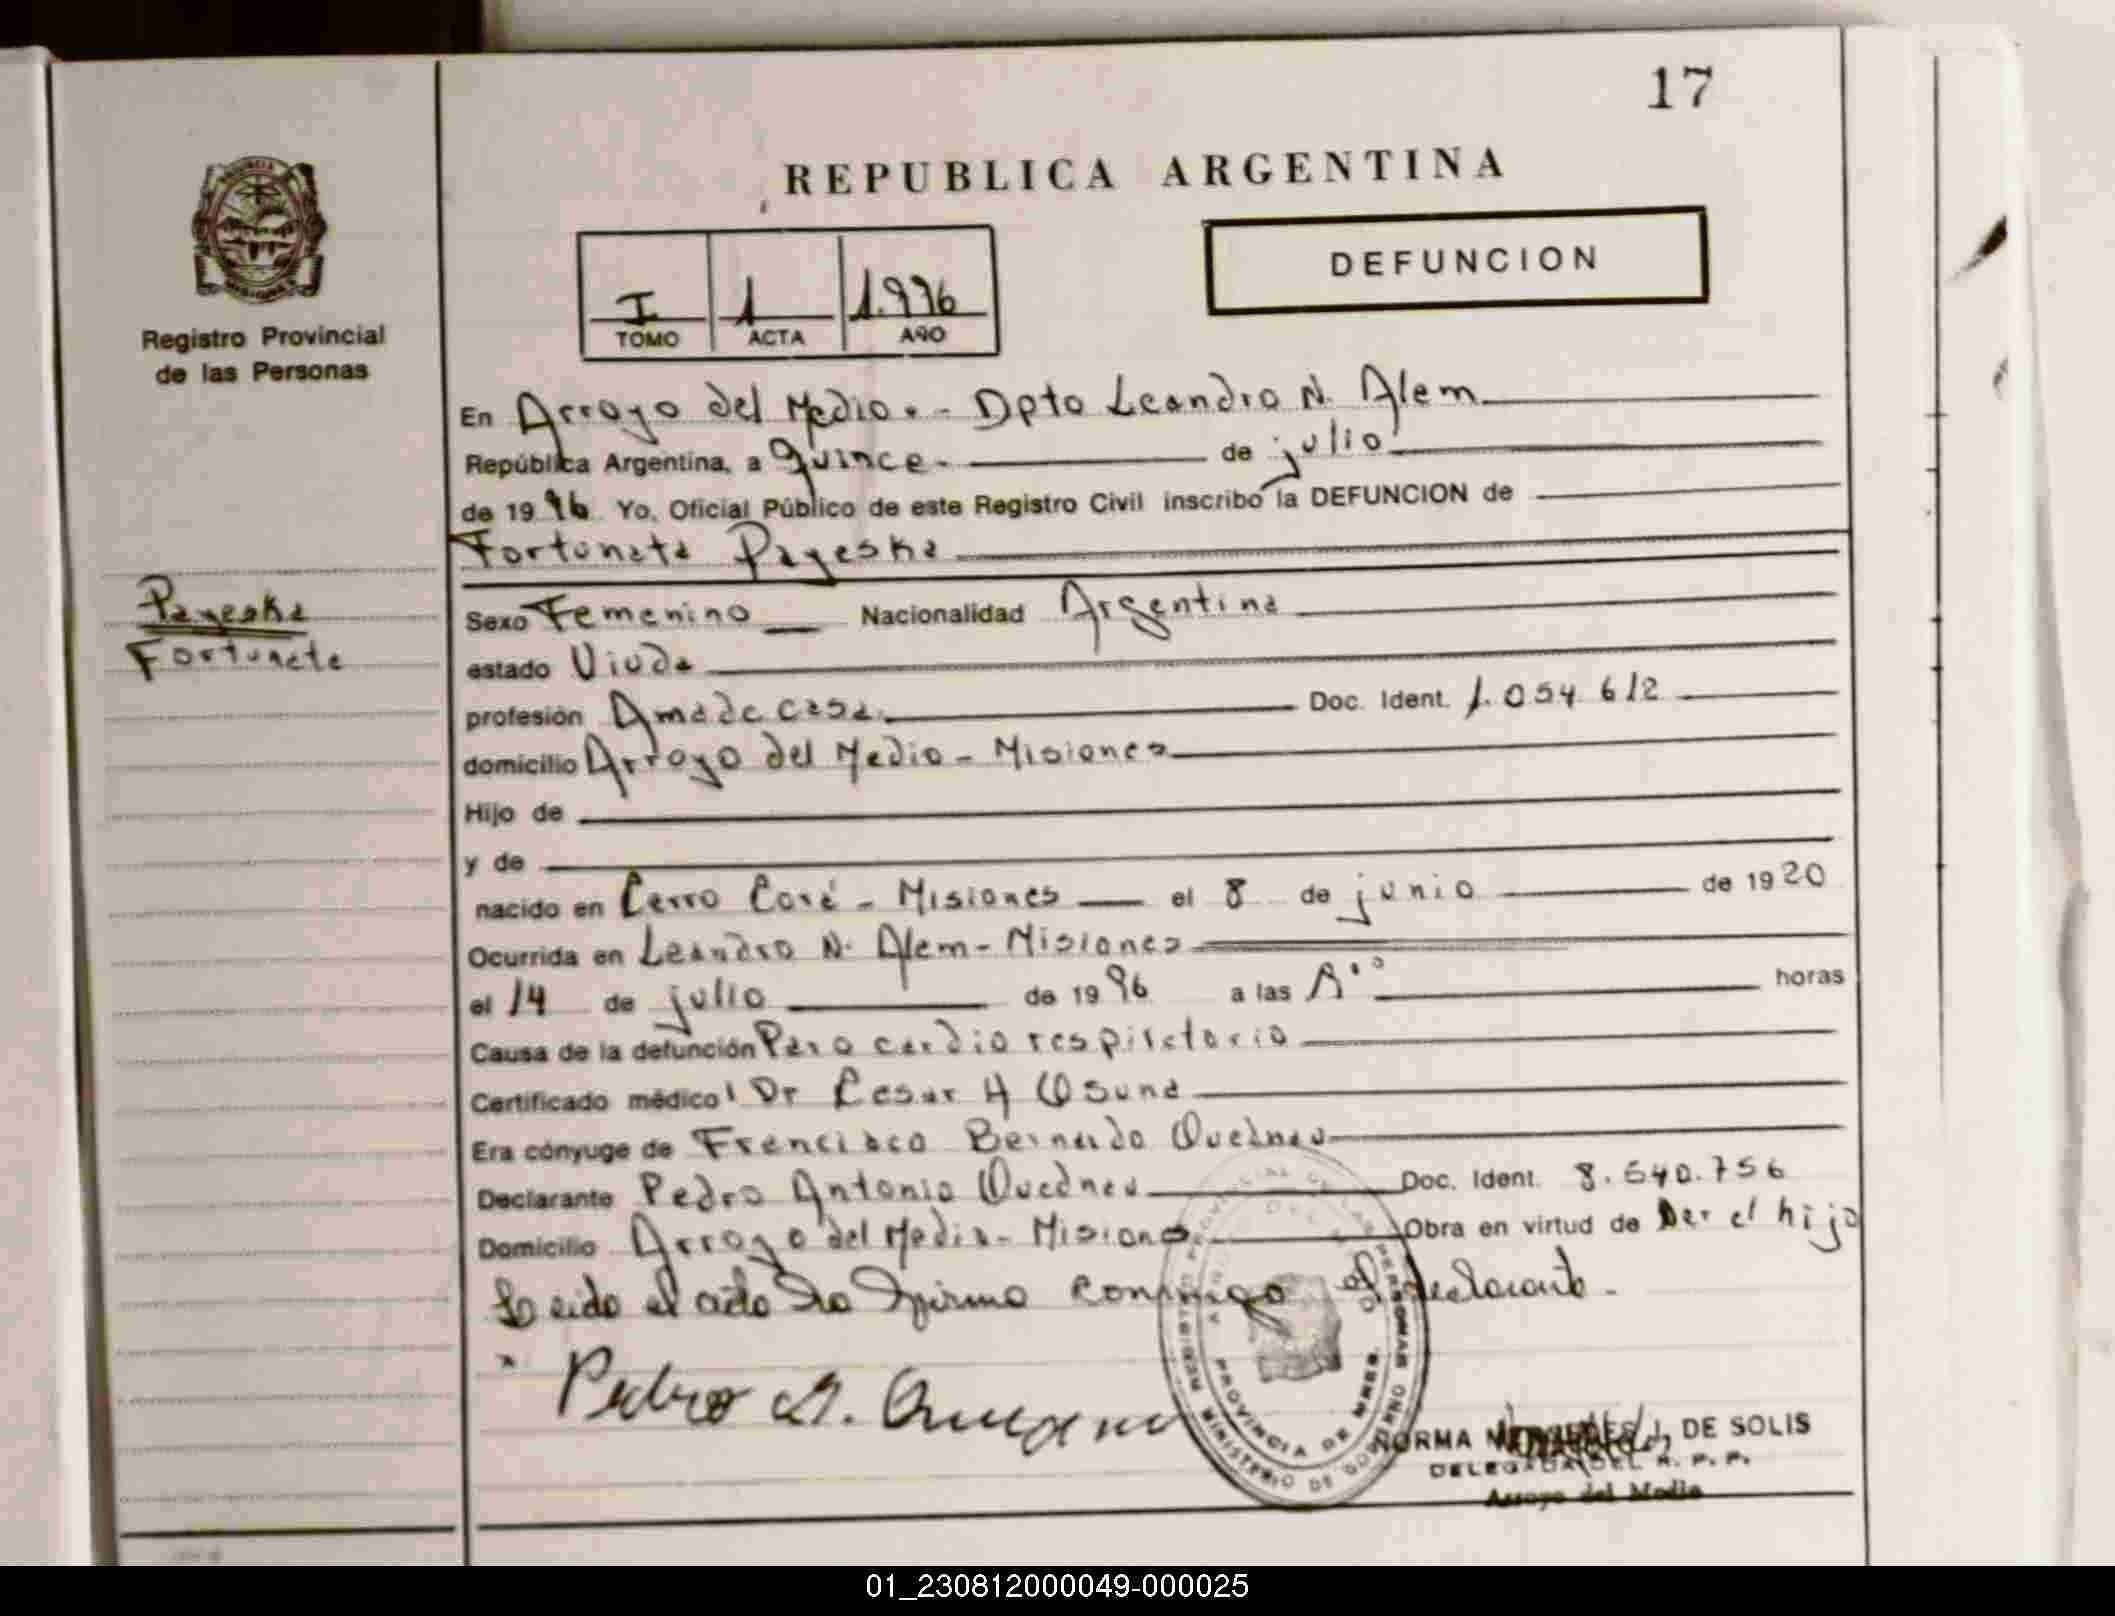 17
REPUBLICA ARGENTINA
DEFUNCION
I 1 1.996
TOMO ACTA AÑO
Registro Provincial
de las Personas
En Arroyo del Medio.- Dpto Leandro N. Alem
República Argentina, a quince.- de julio
de 1996 Yo, Oficial Público de este Registro Civil inscribo la DEFUNCION de
Fortunata Payeska
Payeska
Fortunata
Sexo Femenino Nacionalidad Argentina
estado Viuda
profesión Ama de casa. Doc. Ident. 1.054.612
domicilio Arroyo del Medio - Misiones
Hijo de
y de
nacido en Cerro Corá - Misiones el 8 de junio de 1920
Ocurrida en Leandro N. Alem - Misiones
el 14 de julio de 1996 a las horas
Causa de la defunción Paro cardio respiratorio
Certificado médico Dr Cesar H Osuna
Era cónyuge de Francisco Bernardo Quednau
Declarante Pedro Antonio Quednau Doc. Ident. 8.540.756
Domicilio Arroyo del Medio - Misiones Obra en virtud de Ser el hijo
Leido el acta la firma conmigo el declarante.-
Pedro A. Quednau
REGISTRO PROVINCIAL DE LAS PERSONAS
MINISTERIO DE GOBIERNO
PROVINCIA DE MNES.
NORMA DE SOLIS
DELEGADA DEL R. P. P.
Arroyo del Medio
01_230812000049-000025